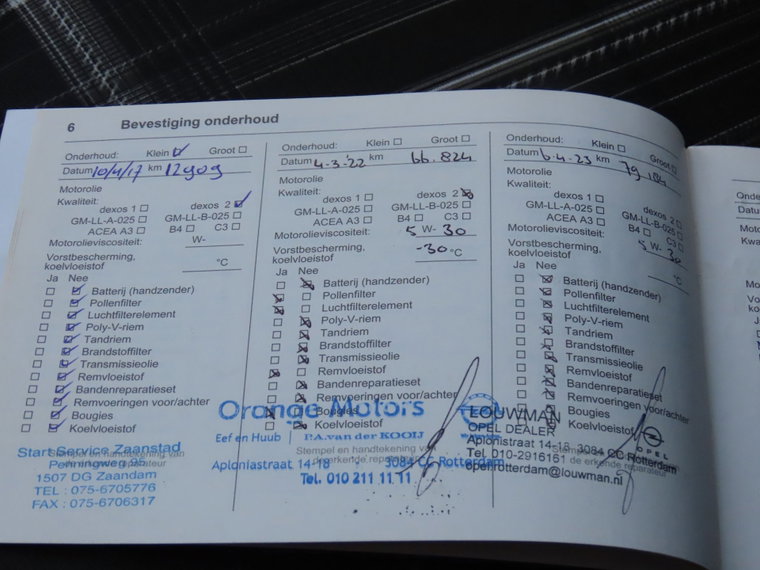 6 Bevestiging onderhoud
Onderhoud: Klein Groot
Datum 10/4/17 km 12909
Motorolie
Kwaliteit:
dexos 1 dexos 2
GM-LL-A-025 GM-LL-B-025
ACEA A3 B4 C3
Motorolieviscositeit: W-
Vorstbescherming,
koelvloeistof °C
Ja Nee
Batterij (handzender)
Pollenfilter
Luchtfilterelement
Poly-V-riem
Tandriem
Brandstoffilter
Transmissieolie
Remvloeistof
Bandenreparatieset
Remvoeringen voor/achter
Bougies
Koelvloeistof
Start Service Zaanstad
Penningweg 95
1507 DG Zaandam
TEL : 075-6705776
FAX : 075-6706317
Onderhoud: Klein Groot
Datum 4-3-'22 km 66.824
Motorolie
Kwaliteit:
dexos 1 dexos 2
GM-LL-A-025 GM-LL-B-025
ACEA A3 B4 C3
Motorolieviscositeit: 5 W- 30
Vorstbescherming,
koelvloeistof -30 °C
Ja Nee
Batterij (handzender)
Pollenfilter
Luchtfilterelement
Poly-V-riem
Tandriem
Brandstoffilter
Transmissieolie
Remvloeistof
Bandenreparatieset
Remvoeringen voor/achter
Bougies
Koelvloeistof
Orange Motors
Eef en Huub P.A. van der KOOIJ
Stempel en handtekening van
de erkende reparateur
Aploniastraat 14-18 3084 CC Rotterdam
Tel. 010 211 11 11
Onderhoud: Klein Groot
Datum 6-4-23 km 79.104
Motorolie
Kwaliteit:
dexos 1 dexos 2
GM-LL-A-025 GM-LL-B-025
ACEA A3 B4 C3
Motorolieviscositeit: 5 W- 30
Vorstbescherming,
koelvloeistof °C
Ja Nee
Batterij (handzender)
Pollenfilter
Luchtfilterelement
Poly-V-riem
Tandriem
Brandstoffilter
Transmissieolie
Remvloeistof
Bandenreparatieset
Remvoeringen voor/achter
Bougies
Koelvloeistof
LOUWMAN
OPEL DEALER
OPEL
Aplonistraat 14-18 3084 CC Rotterdam
Tel 010-2916151 de erkende reparateur
openrotterdam@louwman.nl